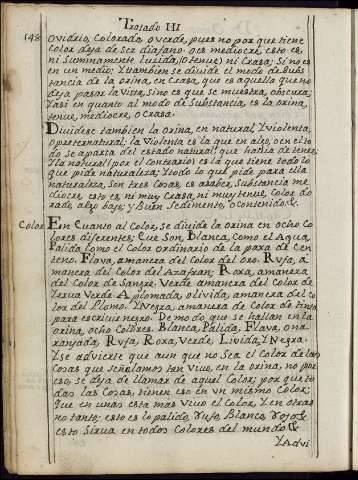 Tratado III
148
Ovidrio, Colorado, o verde, pues no por que tiene
Color deja de ser diafano. O es mediocre, esto es,
ni summamente lucida, o tenue, ni Crasa; Sino es
en un medio; Y tambien se divide el modo de Subs
tancia de la orina, en Crasa, que es aquella que no
deja pasar la Vista, sino es que se muestra, obscura;
Y asi en quanto al modo de Substancia, es la orina,
tenue, mediocre, o Crasa.
Dividese tambien la orina, en natural, Y violenta,
o preternatural; la Violenta es la que en algo, o en to
do se aparta del estado natural que havia de tener,
Y la natural (por el Contrario) es la que tiene todo lo
que pide naturaleza; Y todo lo que pide para ella
naturaleza, Son tres Cosas, es asaber, Substancia me
diocre, esto es, ni muy Crasa, ni muy tenue, Color do
rado, algo bajo; y Buen Sedimento, o Contenido &.
Color
En Quanto al Color, se divide la orina en ocho Co
lores diferentes; Que Son, Blanca, Como el Agua,
Palida, Como el Color ordinario de la paxa de Cen
teno. Flava, amanera del Color del oro. Rufa, a
manera del Color del Azafran; Roxa, amanera
del Color de Sangre. Verde amanera del Color de
Yerva Verde. Aplomada, o livida, amanera del Co
lor del Plomo. Y Negra, amanera de Color de tinta
para escrivir negro. De modo que se hallan en la
orina, ocho Colores. Blanca, Palida, Flava, o na
ranjada, Rufa, Roxa, Verde, Livida, Y Negra.
Y se advierte que aun que no Sea el Color de las
Cosas que señalamos tan Vivo, en la orina, no por
eso, se deja de llamar de aquel Color; por que to
das las Cosas, tienen eso en un mismo Color;
Que en unas esta mas Vivo el Color, Y en otras
no tanto; esto es lo palido, rufo, Blanco, rojo &
esto Sirva en todos Colores del mundo &
Y Advi